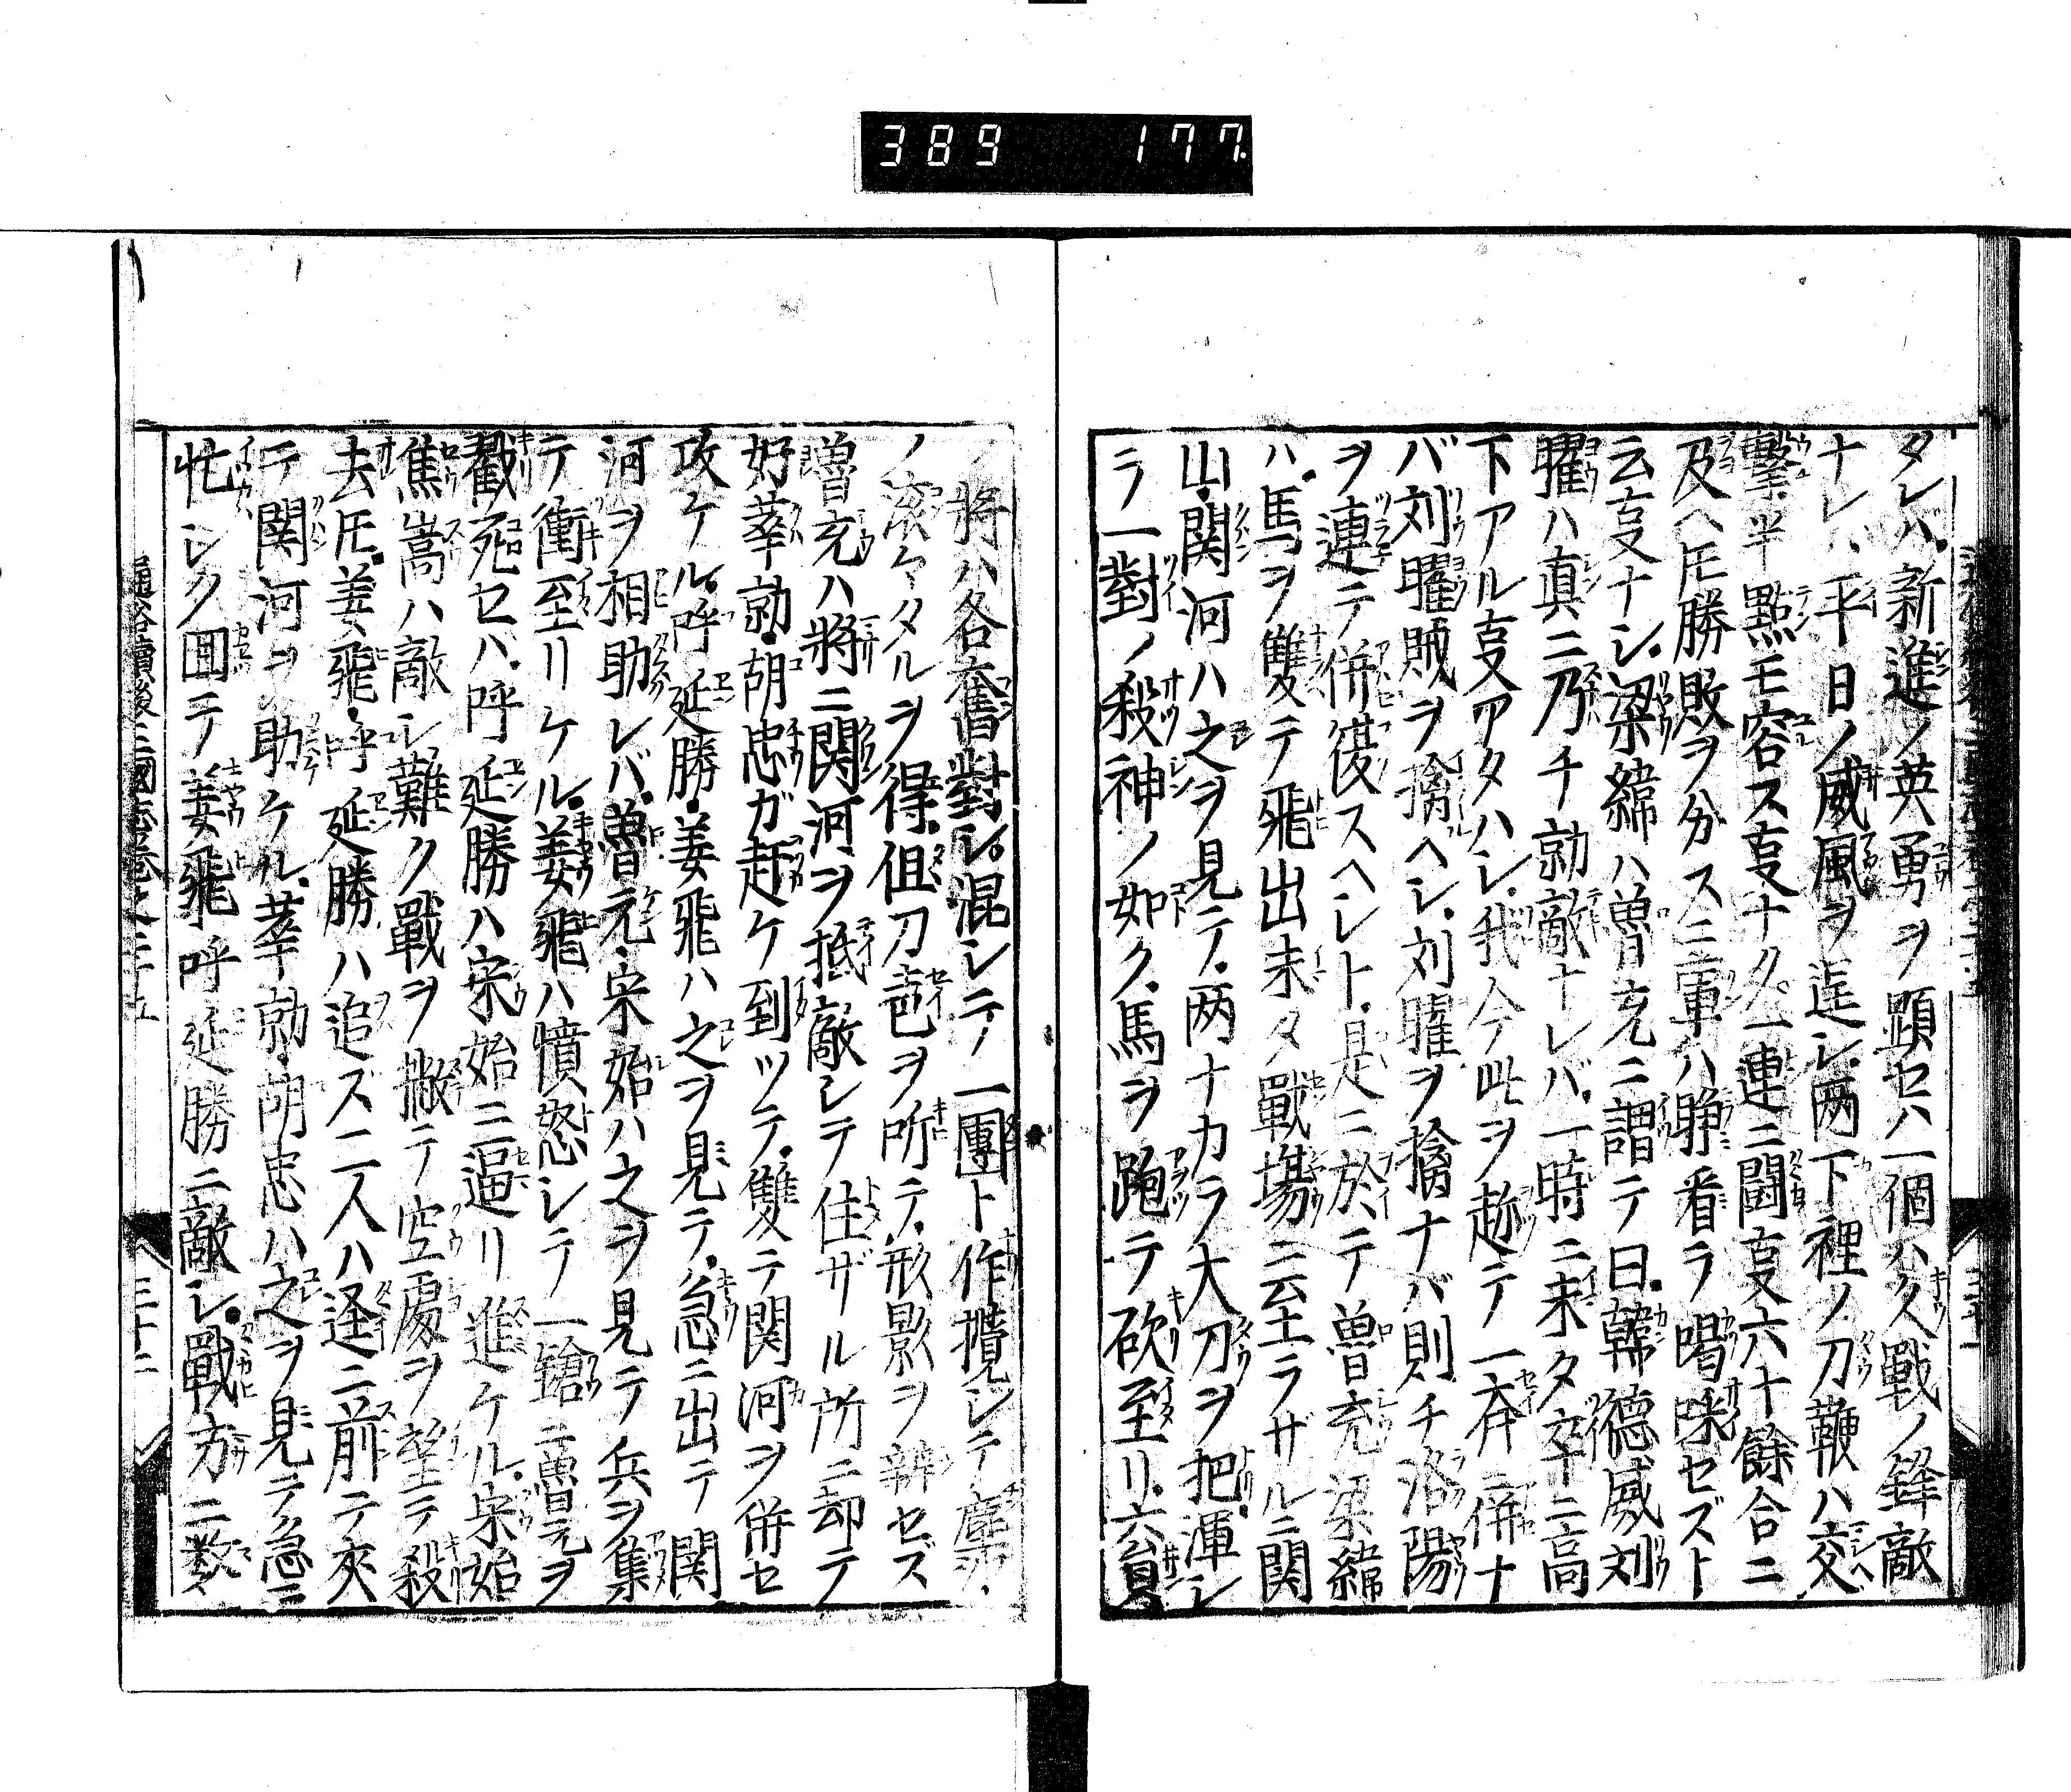 389 177
タレバ新進ノ英勇ヲ顕セハ一個ハ久戰ノ鋒敵
ナレバ平日ノ威風ヲ逞シ両下裡ノ刀鞭ハ交
撃半點モ容ス㕝ナク一連ニ闘㕝六十餘合ニ
及ヘ𪜈勝敗ヲ分ス三軍ハ睜看ラ喝咪セズト
云㕝ナシ梁緯ハ曽充ニ謂テ曰韓德威刘
曜ハ真ニ乃チ勍敵ナレバ一時ニ未タ卒ニ高
下アル㕝アタハシ我今此ヲ趂テ一斉ニ併ナ
バ刘曜賊ヲ擒ヘシ刘曜ヲ擒ナバ則チ洛陽
ヲ連テ併復スヘシト是ニ於テ曽充梁緯
ハ馬ヲ雙テ飛出未タ戰場ニ至ラザルニ関
山関河ハ之ヲ見テ両ナカラ大刀ヲ把渾レ
ラ一對ノ殺神ノ如ク馬ヲ跑テ砍至リ六員
ノ將ハ各奮對シ混シテ一團ト作攬シテ塵
ノ滚タルヲ得但刀㐌ヲ所テ形影ヲ辨セズ
曽充ハ將ニ関河ヲ抵敵シテ住ザル所ニ却テ
好莘勍胡忠ガ赶ケ到ッテ雙テ関河ヲ併セ
攻ケル呼延勝姜飛ハ之ヲ見テ急ニ出テ関
河ヲ相助レバ曽元宋始ハ之ヲ見テ兵ヲ集
テ衝至リケル姜飛ハ憤怒シテ一鎗ニ曽元ヲ
戳死セハ呼延勝ハ宋始ニ逼リ進ケル宋始
焦嵩ハ敵シ難ク戰ヲ撇テ空處ヲ望テ殺
去𪜈姜飛呼延勝ハ追ズ二人ハ逕ニ前テ夾
テ関河ヲ助ケル莘勍胡忠ハ之ヲ見テ急ニ
忙シク囬テ姜飛呼延勝ニ敵シ戰方ニ数
通俗續後三國志卷之二十五
三十二